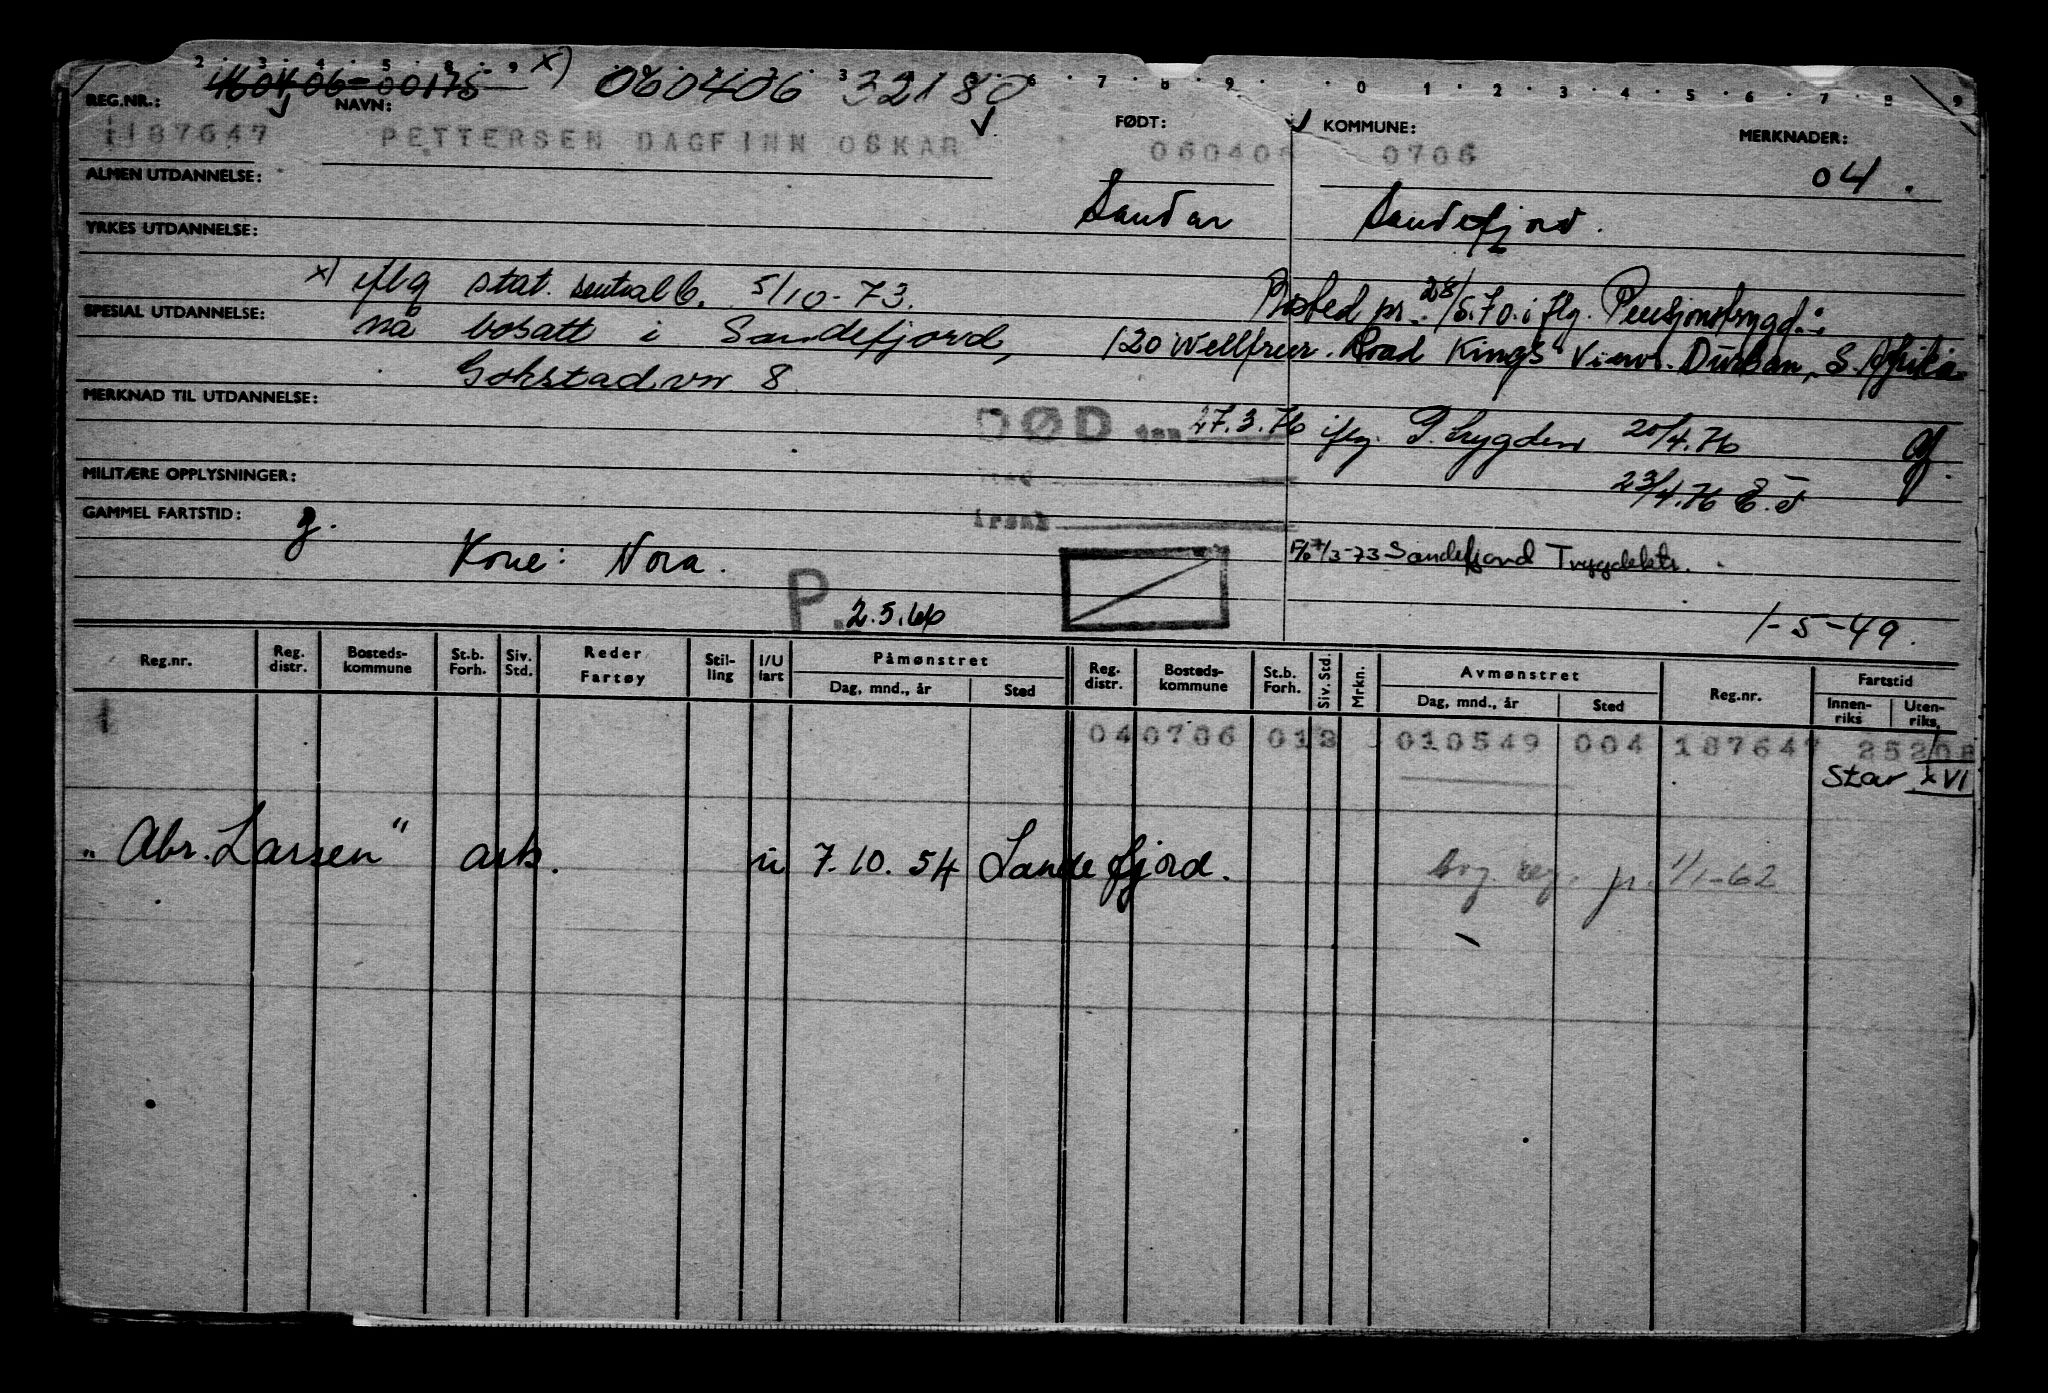 160406-00175 x) 060406 32180
REG.NR.: NAVN: FØDT: KOMMUNE: MERKNADER:
1187647 PETTERSEN DAGFINN OSKAR 060406 0706
04.
ALMEN UTDANNELSE:
Sandar Sandefjord.
YRKES UTDANNELSE:
x) iflg stat. sentralb. 5/10-73.
Bosted pr. 28/5.70. iflg. Pensjonstrygd.:
SPESIAL UTDANNELSE:
nå bosatt i Sandefjord,
120 Wellfreer. Road Kings View. Durban, S. Afrika
Gokstadvn 8
MERKNAD TIL UTDANNELSE:
DØD den 27.3.76 iflg. P.trygden 20/4.76
MILITÆRE OPPLYSNINGER:
23/4.76
GAMMEL FARTSTID: g.
Kone: Nora.
7/3-73 Sandefjord Trygdektr.
P. 2.5.66
1-5-49.
Reg.nr. Reg. distr. Bosteds-kommune St.b. Forh. Siv. Std. Reder Fartøy Stil-ling I/U fart Påmønstret Dag, mnd., år Sted Reg. distr. Bosteds-kommune St.b. Forh. Siv. Std. Mrkn. Avmønstret Dag, mnd., år Sted Reg.nr. Fartstid Innen-riks Uten-riks
1 04 0706 01 010549 004 187647
Star XVI
"Abr. Larsen" ask. u 7.10.54 Sandefjord. pr. 1/1-62